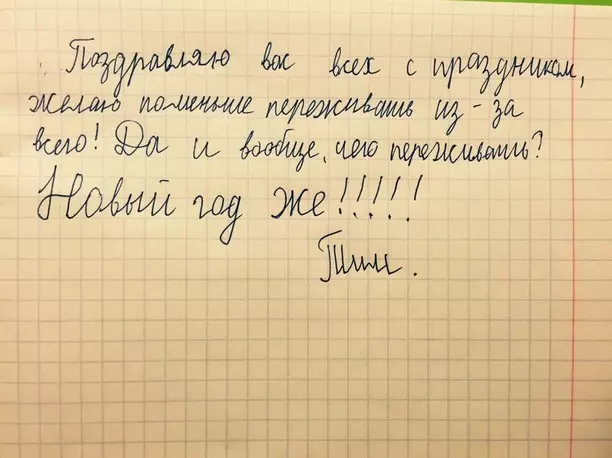 Поздравляю вас всех с праздником,
желаю поменьше переживать из-за
всего! Да и вообще, чего переживать?
Новый год же!!!!!
Тим.